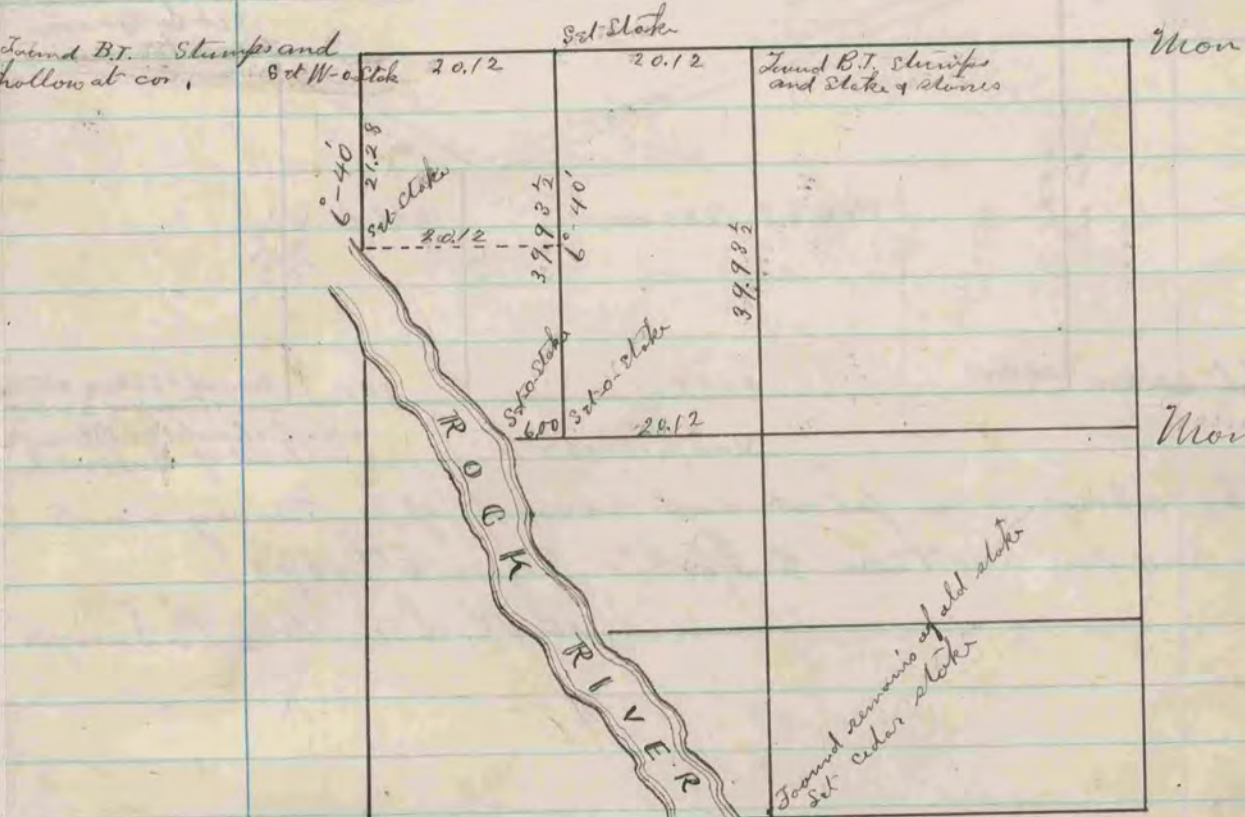 Set Stake
Mon
Found B.T. Stumps and
hollow at cor.
Set W-o-Stak
20.12
20.12
Found B.T. Stumps
and Stake & stones
6°-40'
21.28
Set Stake
20.12
39.93 1/2
6°-40'
39.98 1/2
Set-o-Stake
6.00
Set-o-Stake
20.12
Mon
ROCK RIVER
Found remains of old stake
Set cedar stake